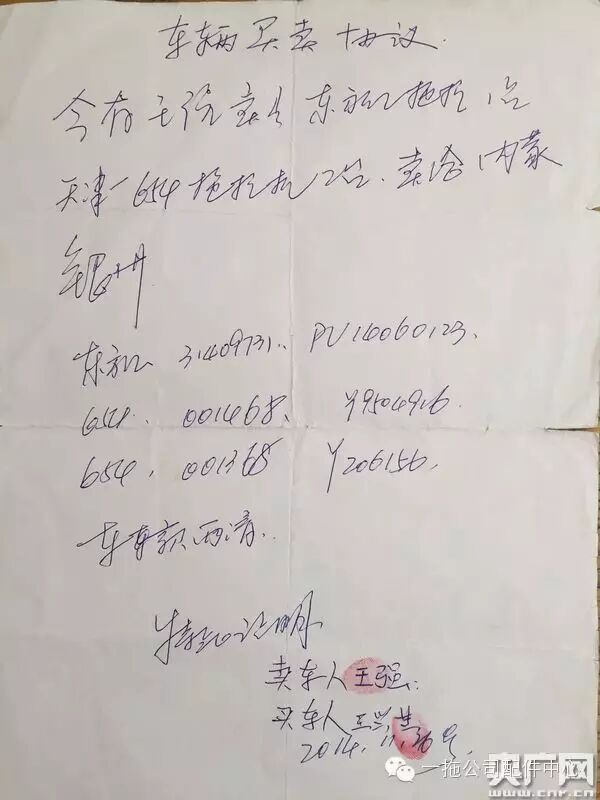 车辆买卖协议
今有王强卖出东方红拖拉1台
天津一654拖拉机2台.卖给内蒙
银川
东方红 31409731. PU14060123.
654. 001468. Y9504916.
654. 001368 Y206156.
车款两清.
特此证明
卖车人王强.
买车人王兴
2014.11.26号.
一拖公司配件中心
央广网
www.cnr.cn